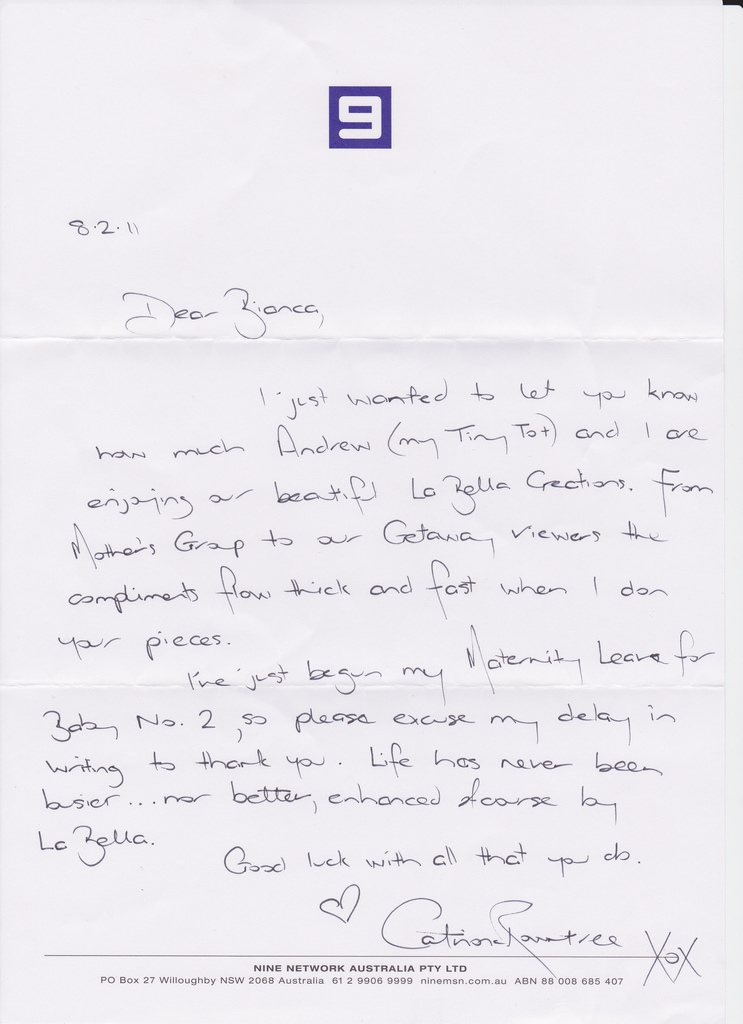 9
8.2.11
Dear Bianca,
I just wanted to let you know
how much Andrew (my Tiny Tot) and I are
enjoying our beautiful La Bella Creations. From
Mother's Group to our Getaway viewers the
compliments flow thick and fast when I don
your pieces.
I've just begun my Maternity Leave for
Baby No. 2, so please excuse my delay in
writing to thank you. Life has never been
busier... nor better, enhanced ofcourse by
La Bella.
Good luck with all that you do.
♡ Catriona Rowntree XoX
NINE NETWORK AUSTRALIA PTY LTD
PO Box 27 Willoughby NSW 2068 Australia 61 2 9906 9999 ninemsn.com.au ABN 88 008 685 407